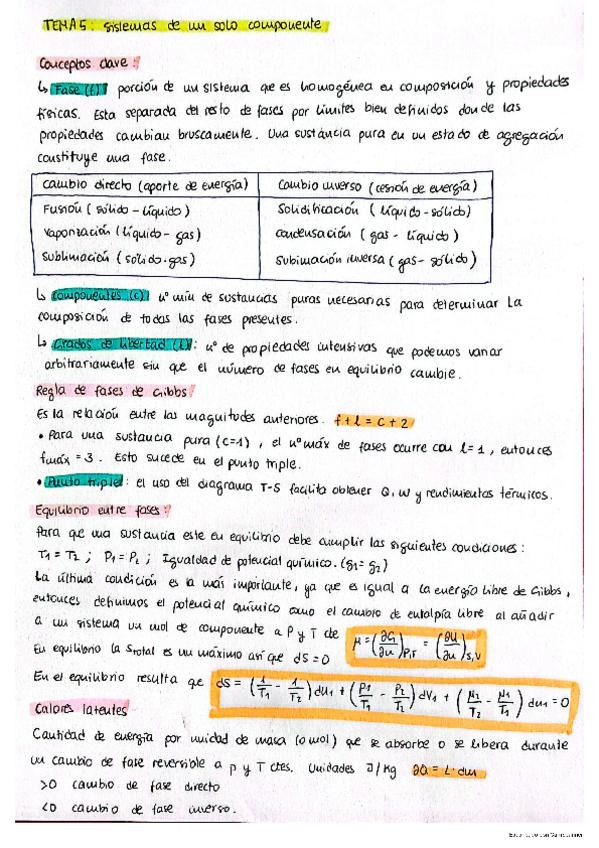 TEMA 5: sistemas de un solo componente
Conceptos clave:
↳ Fase (f): porción de un sistema que es homogénea en composición y propiedades
físicas. Esta separada del resto de fases por límites bien definidos donde las
propiedades cambian bruscamente. Una sustancia pura en un estado de agregación
constituye una fase.
Cambio directo (aporte de energía) Cambio inverso (cesión de energía)
Fusión (sólido - líquido) Solidificación (líquido - sólido)
Vaporización (líquido - gas) Condensación (gas - líquido)
Sublimación (solido - gas) Sublimación inversa (gas - sólido)
↳ Componentes (c): nº mín de sustancias puras necesarias para determinar la
composición de todas las fases presentes.
↳ Grados de libertad (l): nº de propiedades intensivas que podemos variar
arbitrariamente sin que el número de fases en equilibrio cambie.
Regla de fases de Gibbs
Es la relación entre las magnitudes anteriores. f + l = c + 2
• Para una sustancia pura (c=1), el nº máx de fases ocurre con l = 1, entonces
fmáx = 3. Esto sucede en el punto triple.
• Punto triple: el uso del diagrama T-S facilita obtener Q, W y rendimientos térmicos.
Equilibrio entre fases:
Para que una sustancia este en equilibrio debe cumplir las siguientes condiciones:
T₁ = T₂ ; P₁ = P₂ ; Igualdad de potencial químico. (g₁ = g₂)
La última condición es la más importante, ya que es igual a la energía libre de Gibbs,
entonces definimos el potencial químico como el cambio de entalpía libre al añadir
a un sistema un mol de componente a P y T cte μ = (∂G/∂n)P,T = (∂U/∂n)S,V
En equilibrio la Stotal es un máximo así que dS = 0
En el equilibrio resulta que dS = (1/T₁ - 1/T₂) dU₁ + (P₁/T₁ - P₂/T₂) dV₁ + (μ₂/T₂ - μ₁/T₁) dn₁ = 0
Calores latentes
Cantidad de energía por unidad de masa (o mol) que se absorbe o se libera durante
un cambio de fase reversible a p y T ctes. Unidades J/kg ∂Q = L · dm
>0 cambio de fase directo
<0 cambio de fase inverso.